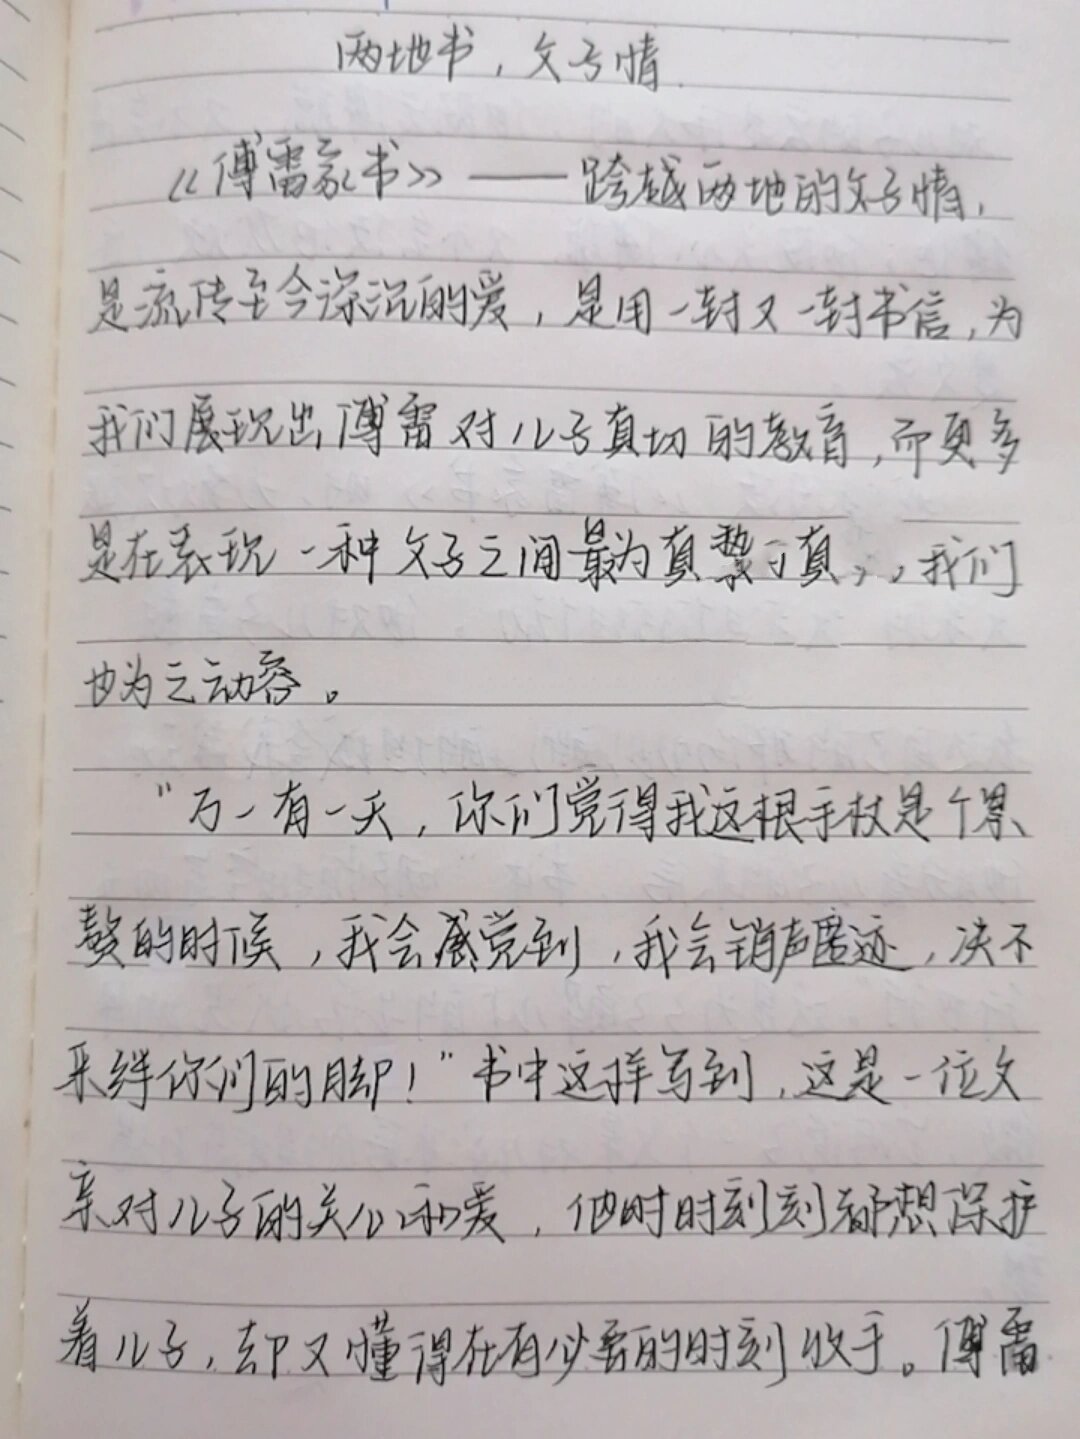 两地书，父子情
《傅雷家书》——跨越两地的父子情，
是流传至今深沉的爱，是用一封又一封书信，为
我们展现出傅雷对儿子真切的教育，而更多
是在表现一种父子之间最为真挚可真，，我们
也为之动容。
"万一有一天，你们觉得我这根手杖是个累
赘的时候，我会感觉到，我会销声匿迹，决不
来绊你们的脚！"书中这样写到，这是一位父
亲对儿子的关心和爱，他时时刻刻都想保护
着儿子，却又懂得在有必要的时刻收手。傅雷